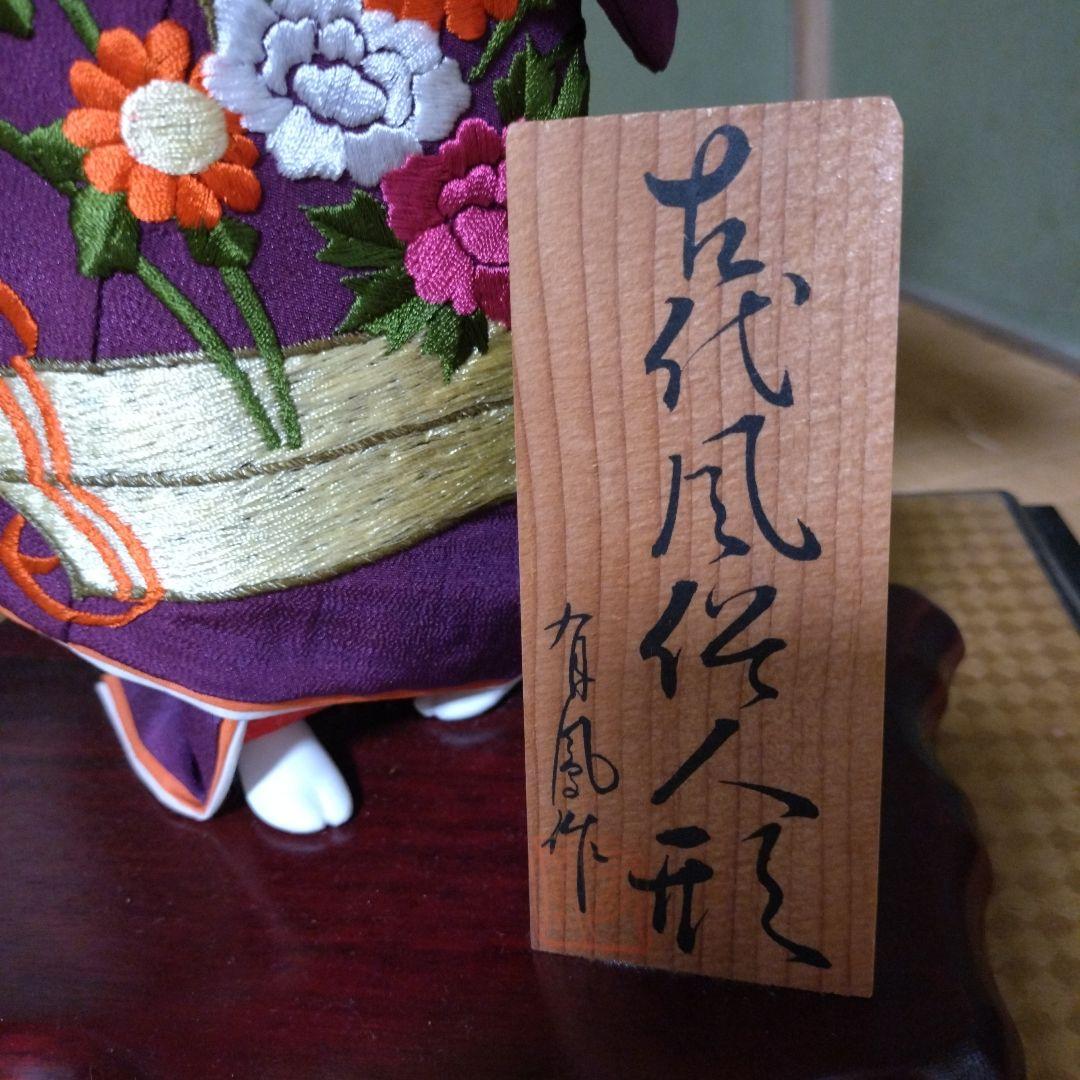 古代風俗人形
有鳳作